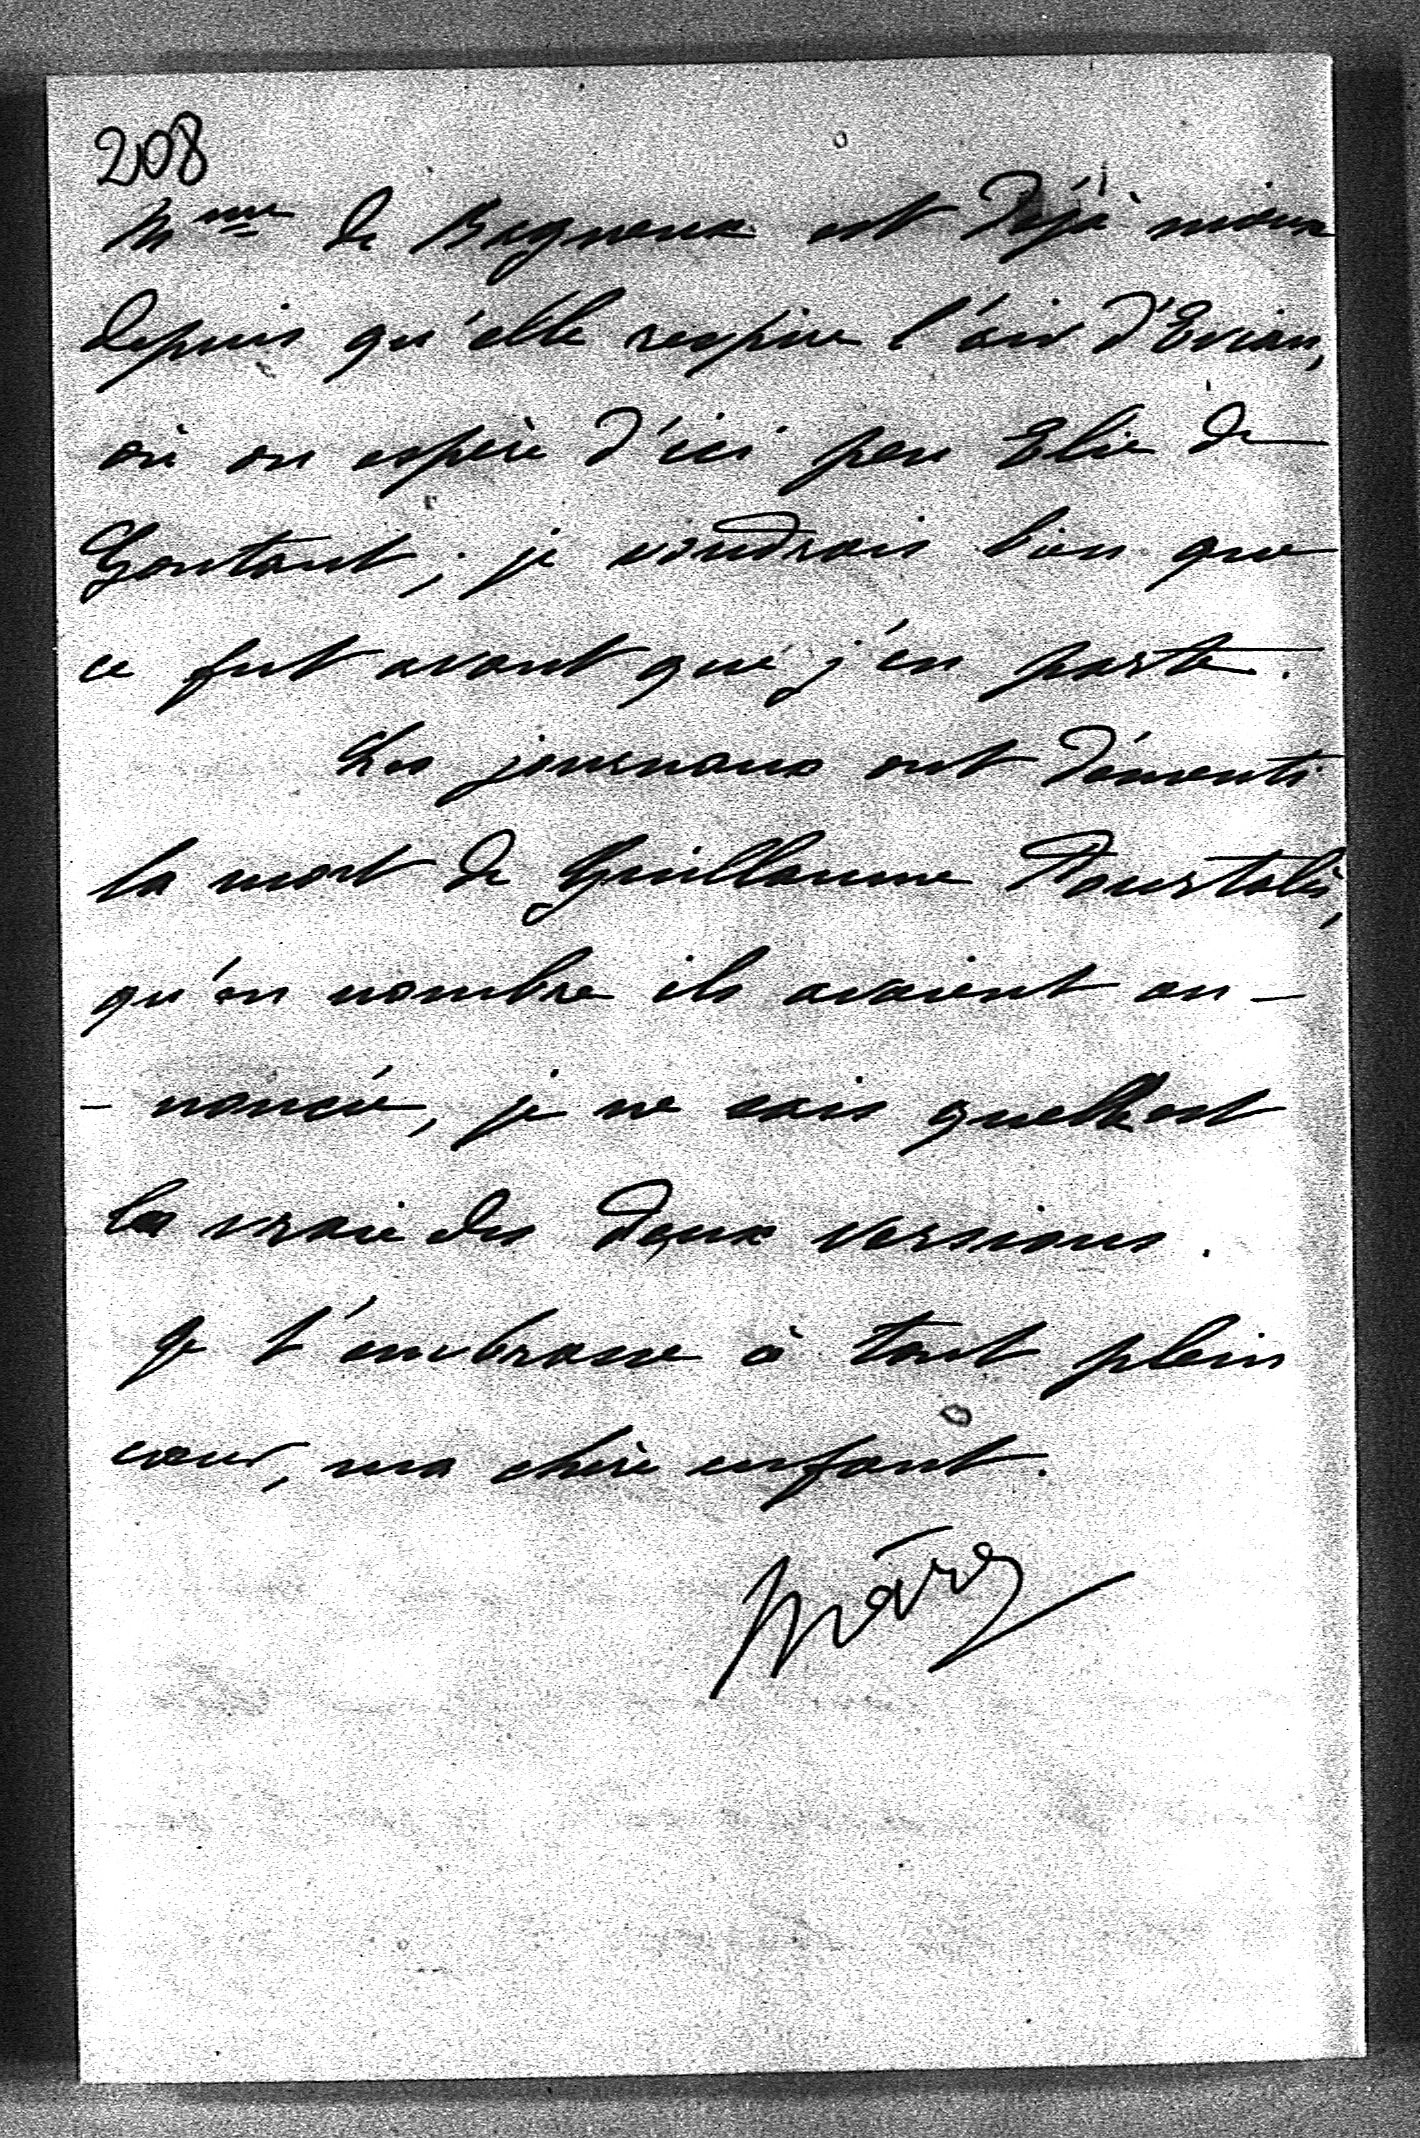 208
Mme de Bagneux est déjà mieux
depuis qu'elle respire l'air d'Evian,
où on espère d'ici peu Elie de
Gontaut ; je voudrais bien que
ce fut avant que j'en parte.
Les journaux ont démenti
la mort de Guillaume Pourtalès,
qu'en nombre ils avaient an-
- noncée, je ne sais quelle est
la vraie des deux versions.
Je t'embrasse à tout plein
cœur, ma chère enfant.